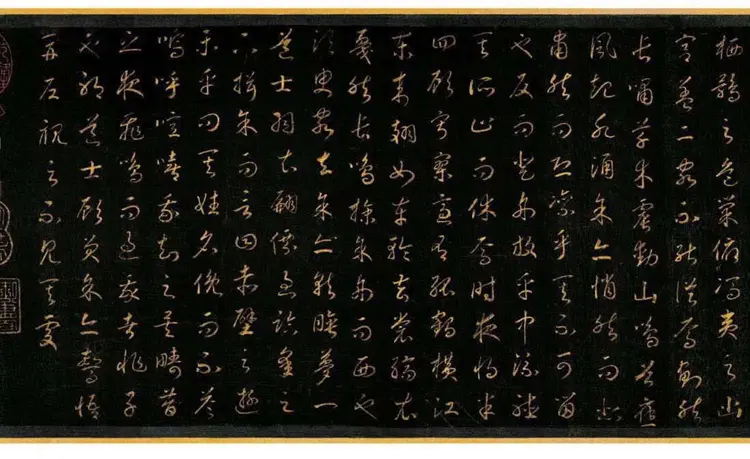 栖鶻之危巢俯馮夷之幽
宮蓋二客不能從焉劃然
長嘯草木震動山鳴谷應
風起水涌余亦悄然而悲
肅然而恐凛乎其不可留
也反而登舟放乎中流聽
其所止而休焉時夜將半
四顧寂寥適有孤鶴橫江
東來翅如車輪玄裳縞衣
戛然長鳴掠余舟而西也
須臾客去余亦就睡夢一
道士羽衣翩僊過臨皋之
下揖余而言曰赤壁之遊
樂乎問其姓名俛而不答
嗚呼噫嘻我知之矣疇昔
之夜飛鳴而過我者非子
也耶道士顧笑余亦驚悟
開戶視之不見其處